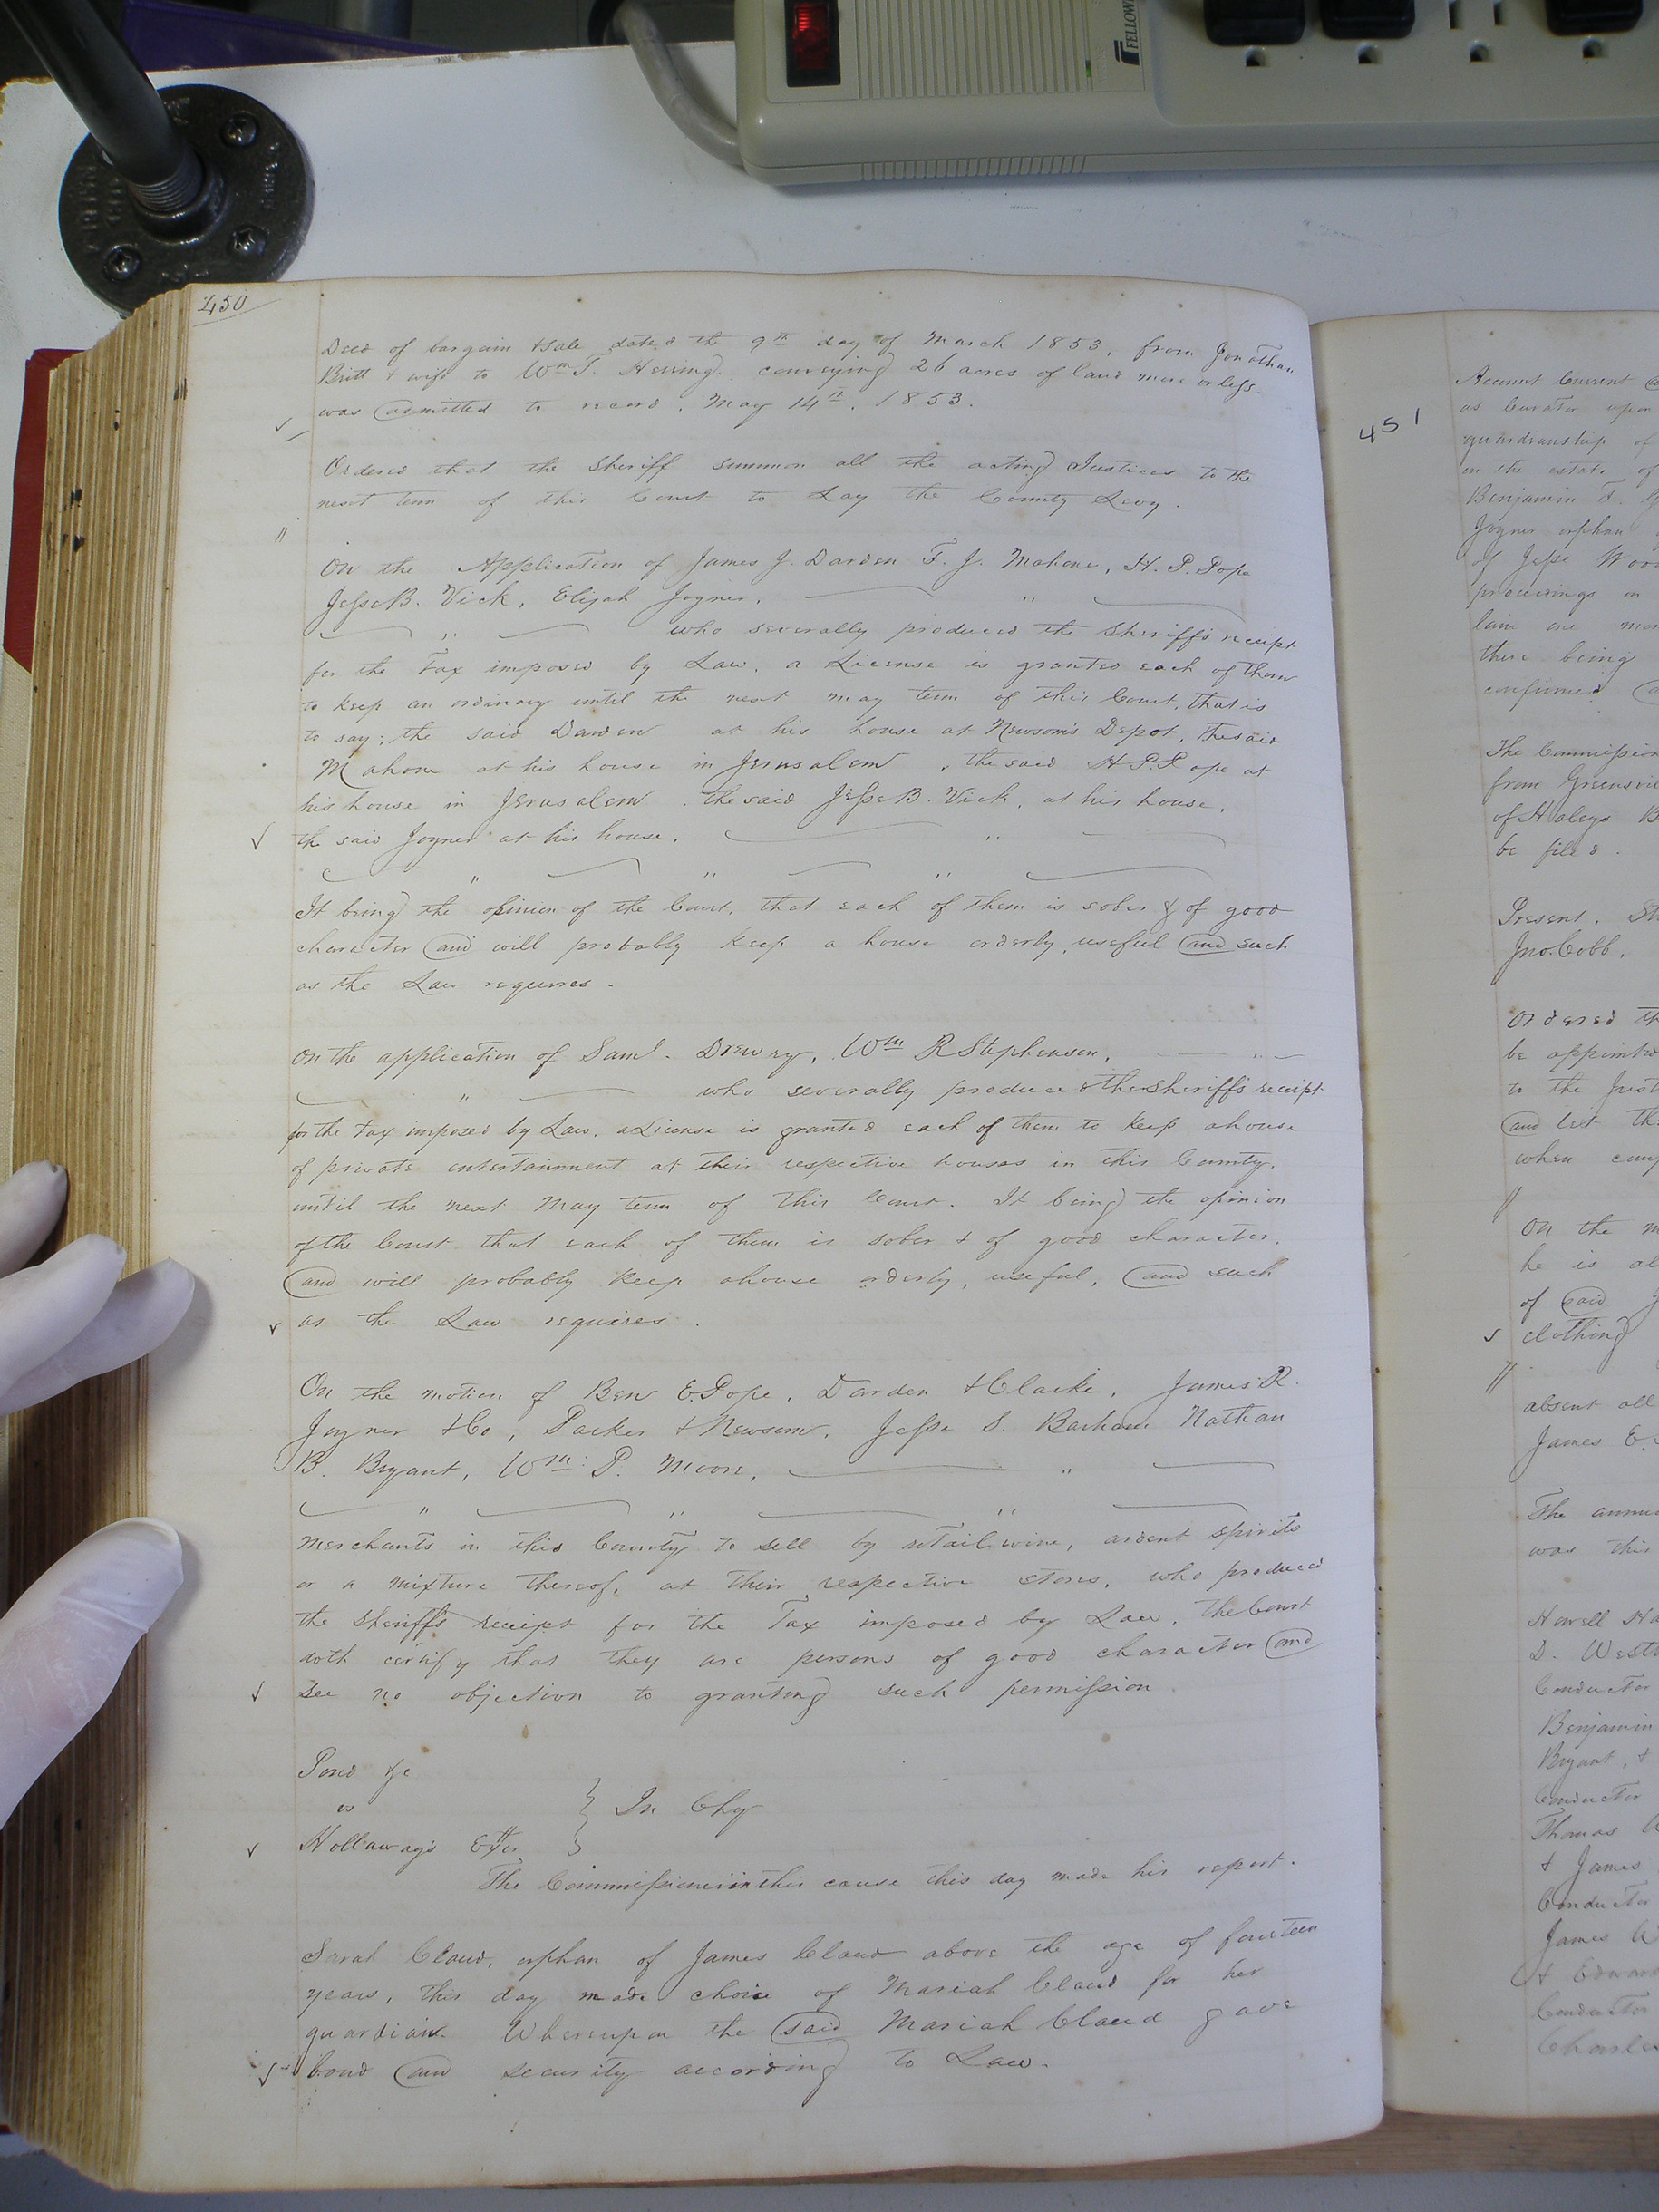 FELLOW
450
Deed of bargain & sale dated the 9th day of March 1853, from Jonathan
Britt & wife to Wm T. Herring. conveying 26 acres of land more or less.
was admitted to record. May 14th. 1853.
Ordered that the Sheriff summon all the acting Justices to the
next term of this Court to Lay the County Levy.
On the Application of James J. Darden F. J. Mahone, H. P. Pope
Jesse B. Vick, Elijah Joyner,
who severally produced the Sheriff's receipt
for the Tax imposed by Law, a License is granted each of them
to keep an ordinary until the next may term of this Court, that is
to say; the said Darden at his house at Newsom's Depot, the said
Mahone at his house in Jerusalem, the said H P. Pope at
his house in Jerusalem. the said Jesse B. Vick, at his house,
the said Joyner at his house,
It being the opinion of the Court, that each of them is sober & of good
character and will probably keep a house orderly, useful and such
as the Law requires.
On the application of Saml. Drewry, Wm R Stephenson,
who severally produced the sheriff's receipt
for the tax imposed by Law, a License is granted each of them to keep a house
of private entertainment at their respective houses in this County,
until the next May term of this Court. It being the opinion
of the Court that each of them is sober & of good character,
and will probably keep a house orderly, useful, and such
as the Law requires.
On the motion of Ben E. Pope, Darden & Clarke, James R.
Joyner & Co, Parker & Newsom, Jesse S. Barham Nathan
B. Bryant, Wm: P. Moore,
merchants in this County to sell by retail wine, ardent spirits
or a mixture thereof, at their respective stores, who produced
the Sheriff's receipt for the Tax imposed by Law, The Court
doth certify that they are persons of good character and
see no objection to granting such permission
Pond &c
vs } In Chy
Hollaway's
The Commissioner in this cause this day made his report.
Sarah Claud, orphan of James Claud above the age of fourteen
years, this day made choice of Mariah Claud for her
guardian. Whereupon the said Mariah Claud gave
bond and security according to Law.
451
Account Current
as Curator upon
guardianship of
in the estate of
Benjamin F.
Joyner orphan
of Jesse
proceedings on
lain one
there being
confirmed
The Commission
from
of Haleys B
be filed.
Present,
Jno. Cobb,
Ordered th
be appointed
to the Just
and let th
when
On the m
he is al
of said J
clothing
absent all
James E.
The
was this
Howell
D.
Conductor
Benjamin
Bryant, &
Conductor
Thomas
& James
Conductor
James W
& Edward
Conductor
Charles